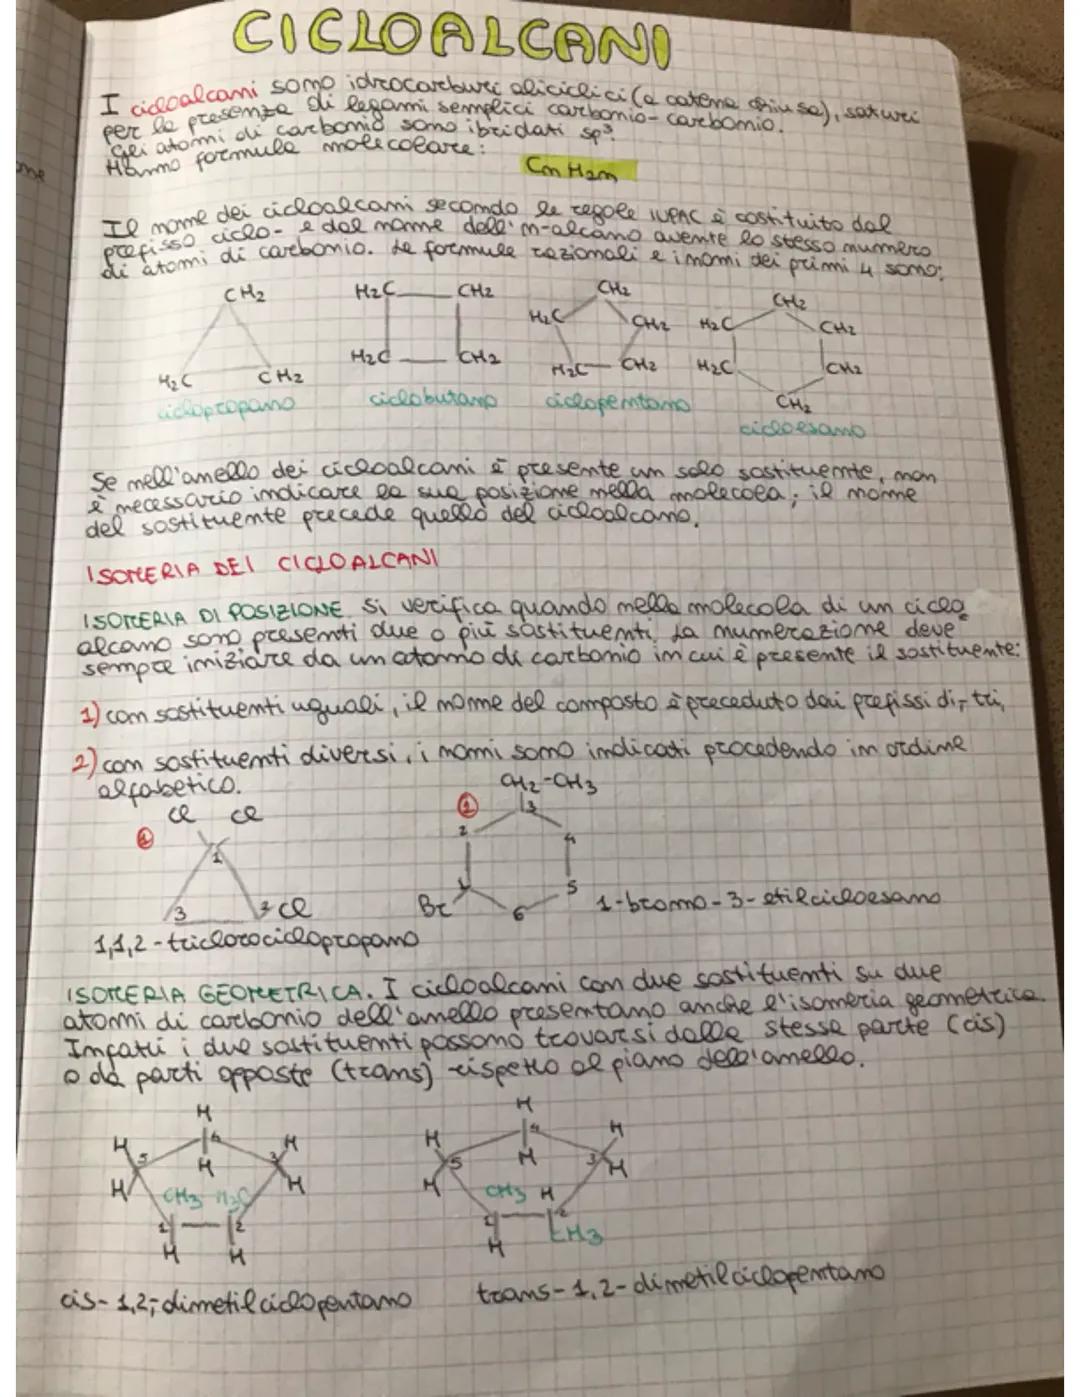 CICLOALCANI
I cicloalcani sono idrocarburi aliciclici (a catena chiusa), saturi
per la presenza di legami semplici carbonio-carbonio.
Gli atomi di carbonio sono ibridati sp³.
Hanno formula molecolare:
CnH2n
Il nome dei cicloalcani secondo le regole IUPAC è costituito dal
prefisso ciclo- e dal nome dell'n-alcano avente lo stesso numero
di atomi di carbonio. Le formule razionali e i nomi dei primi 4 sono:
CH2 H2C CH2 CH2 CH2
H2C CH2 H2C CH2
H2C CH2 H2C CH2 H2C CH2 H2C CH2
CH2
ciclopropano ciclobutano ciclopentano
cicloesano
Se nell'anello dei cicloalcani è presente un solo sostituente, non
è necessario indicare la sua posizione nella molecola; il nome
del sostituente precede quello del cicloalcano.
ISOMERIA DEI CICLOALCANI
ISOMERIA DI POSIZIONE. Si verifica quando nella molecola di un ciclo
alcano sono presenti due o più sostituenti. La numerazione deve
sempre iniziare da un atomo di carbonio in cui è presente il sostituente:
1) con sostituenti uguali, il nome del composto è preceduto dai prefissi di-, tri,
2) con sostituenti diversi, i nomi sono indicati procedendo in ordine
alfabetico.
CH2-CH3
Cl Cl 2 3
1 1 2 4
3 2 Cl Br 1 6 5 1-bromo-3-etilcicloesano
1,1,2-triclorociclopropano
ISOMERIA GEOMETRICA. I cicloalcani con due sostituenti su due
atomi di carbonio dell'anello presentano anche l'isomeria geometrica.
Infatti i due sostituenti possono trovarsi dalla stessa parte (cis)
o da parti opposte (trans) rispetto al piano dell'anello.
H H
H 4 H H 4 H
5 H 3 5 H 3 H
H CH3 H3C H H CH3 H
1 2 1 2 CH3
H H H
cis-1,2,-dimetilciclopentano trans-1,2-dimetilciclopentano